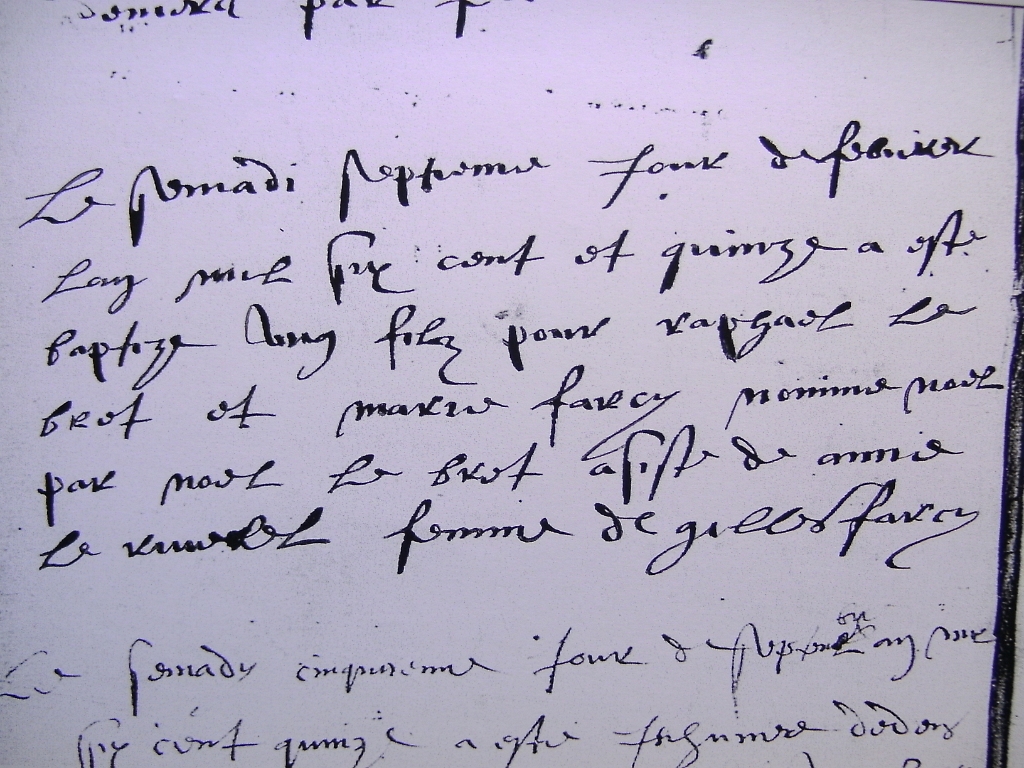 demera par
Le semadi septieme jour de febvrier
Lan mil six cent et quinze a este
baptize ung filz pour raphael Le
bret et marie farcy nomme noel
par noel Le bret asiste de anne
Le femme de gilles farcy
Le semady cinquieme jour de an mil
six cent quinze a este Inhumee dedens